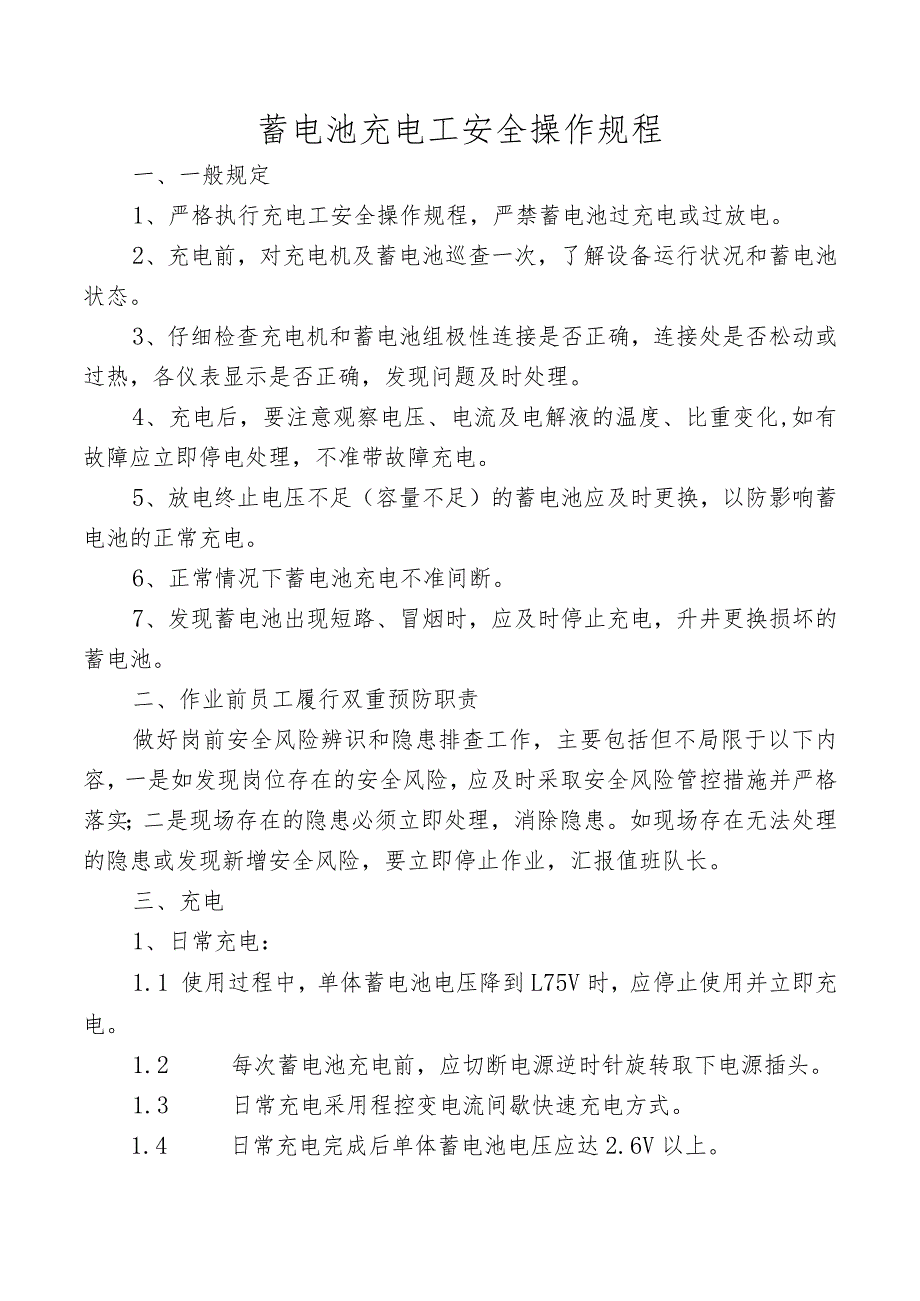 蓄电池充电工安全操作规程
一、一般规定
1、严格执行充电工安全操作规程，严禁蓄电池过充电或过放电。
2、充电前，对充电机及蓄电池巡查一次，了解设备运行状况和蓄电池
状态。
3、仔细检查充电机和蓄电池组极性连接是否正确，连接处是否松动或
过热，各仪表显示是否正确，发现问题及时处理。
4、充电后，要注意观察电压、电流及电解液的温度、比重变化,如有
故障应立即停电处理，不准带故障充电。
5、放电终止电压不足（容量不足）的蓄电池应及时更换，以防影响蓄
电池的正常充电。
6、正常情况下蓄电池充电不准间断。
7、发现蓄电池出现短路、冒烟时，应及时停止充电，升井更换损坏的
蓄电池。
二、作业前员工履行双重预防职责
做好岗前安全风险辨识和隐患排查工作，主要包括但不局限于以下内
容，一是如发现岗位存在的安全风险，应及时采取安全风险管控措施并严格
落实；二是现场存在的隐患必须立即处理，消除隐患。如现场存在无法处理
的隐患或发现新增安全风险，要立即停止作业，汇报值班队长。
三、充电
1、日常充电：
1.1 使用过程中，单体蓄电池电压降到L75V时，应停止使用并立即充
电。
1.2 每次蓄电池充电前，应切断电源逆时针旋转取下电源插头。
1.3 日常充电采用程控变电流间歇快速充电方式。
1.4 日常充电完成后单体蓄电池电压应达2.6V以上。